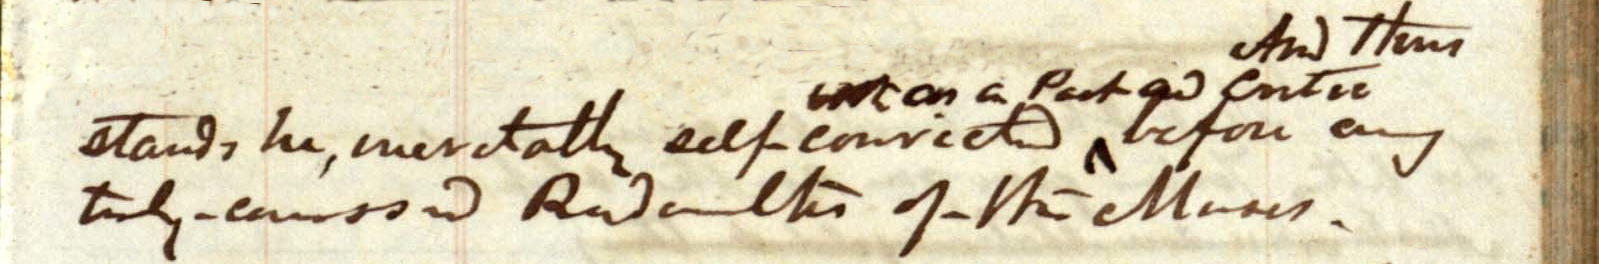 And thus
as a Poet and Critic
stands he, inevitably self-convicted ^ before any
truly- of the Muses.